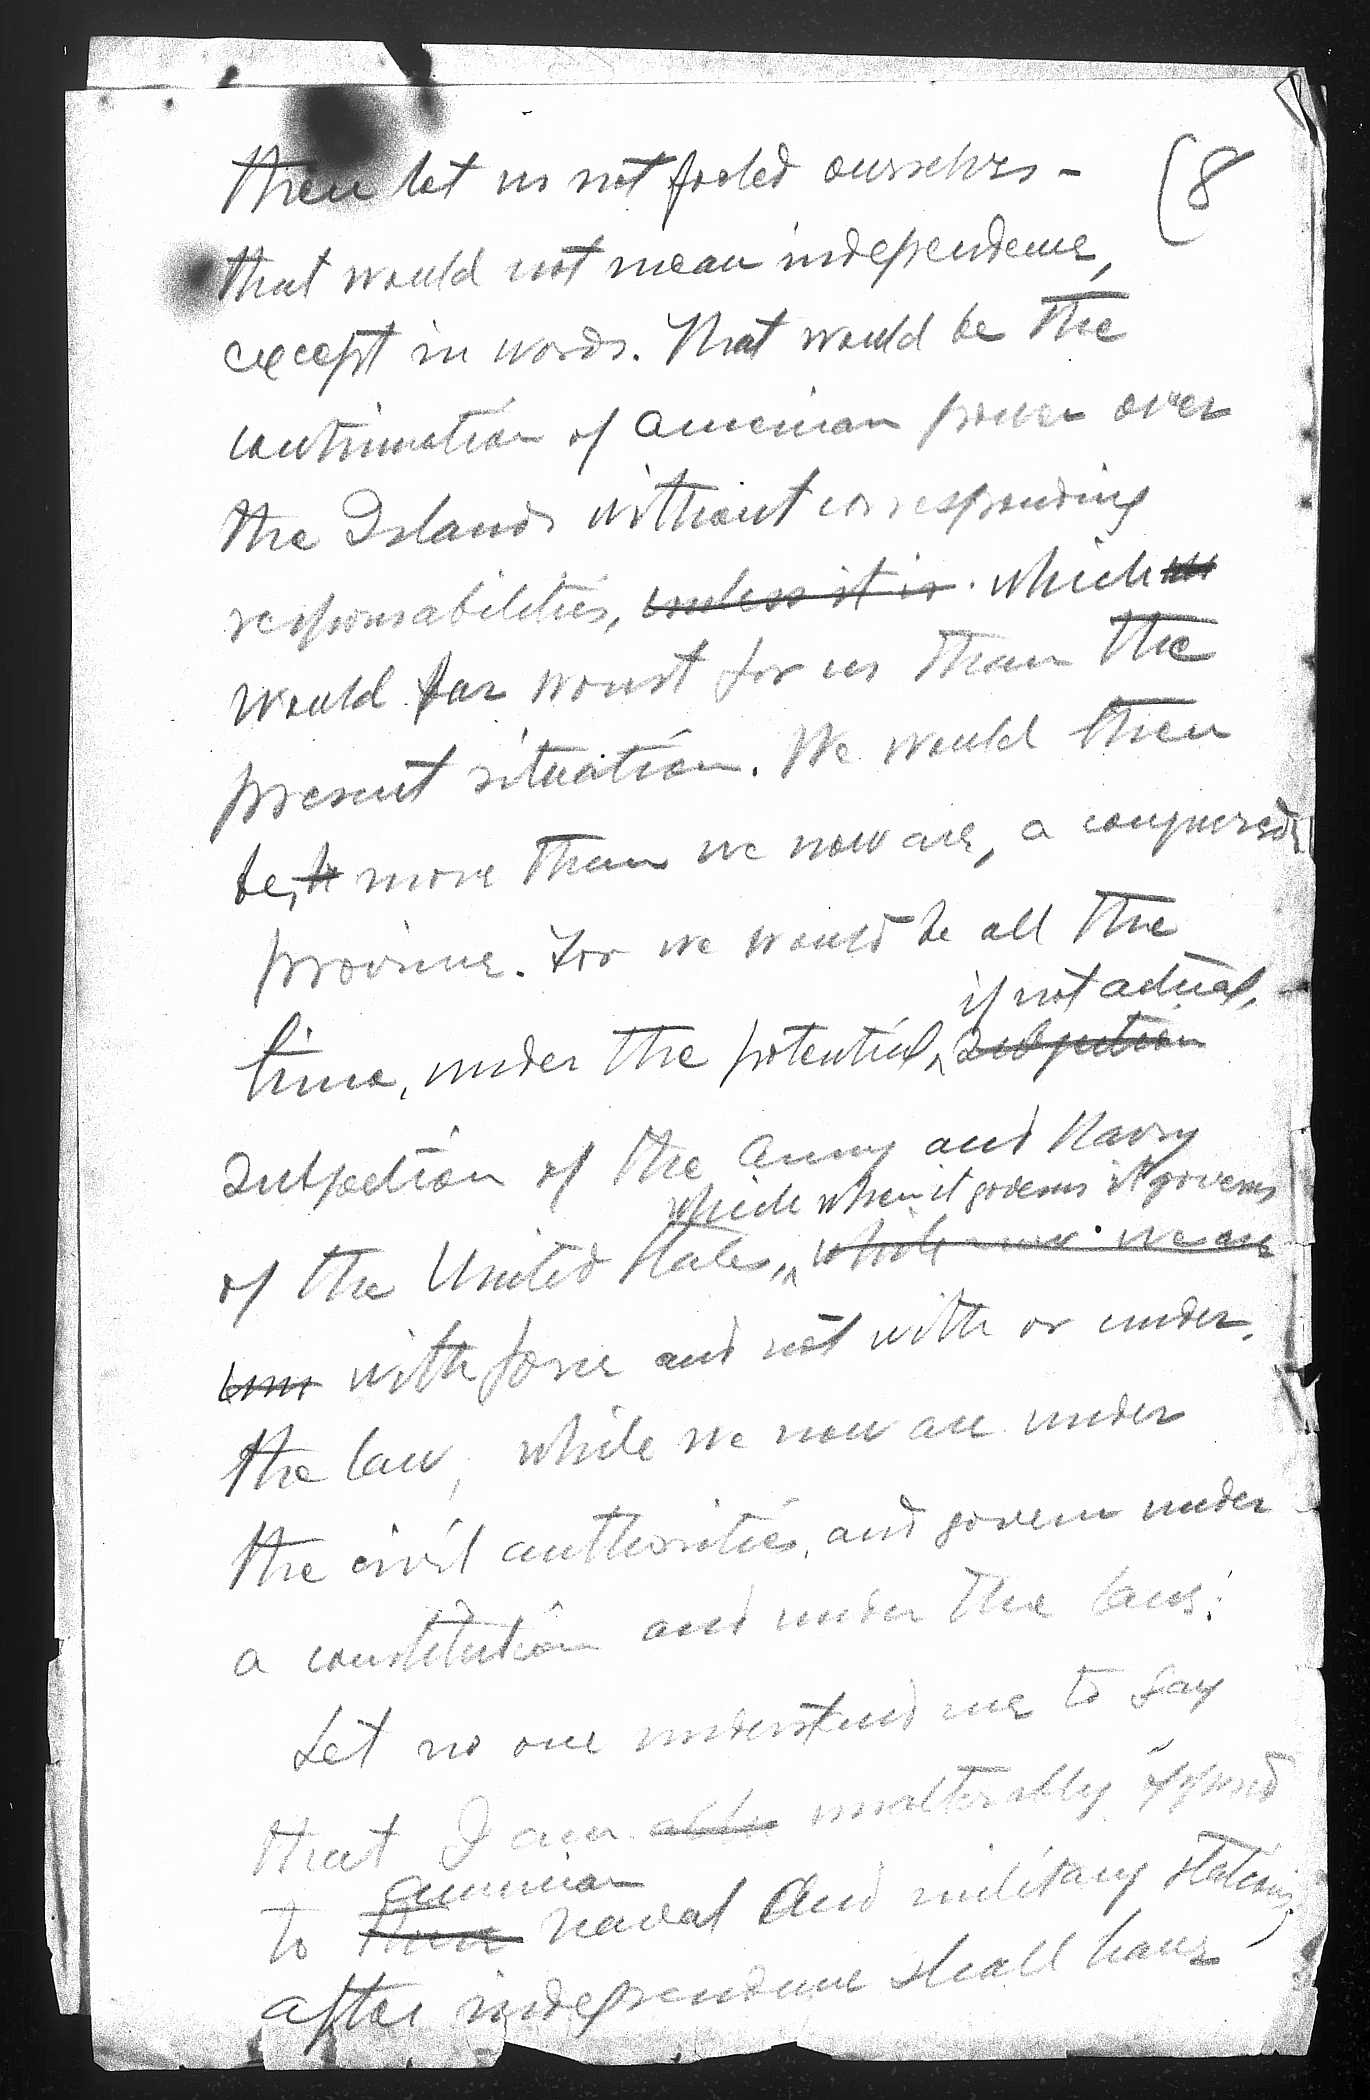 (8
then let us not fooled ourselves -
that would not mean independence,
except in words. That would be the
continuation of American power over
the Islands without corresponding
responsabilities, unless it is. which
would far worst for us than the
present situation. We would then
be, more than we now are, a conquered
province. For we would be all the
if not actual,
time, under the potential, subjection
subjection of the Army and Navy
which when it governs it governs
of the United States, while now we are
with force and not with or under
the law, while we now are under
the civil authorities, and govern under
a constitution and under the laws.
Let no one understand me to say
that I am unalterably opposed
American
to naval and military stations,
after independence shall have